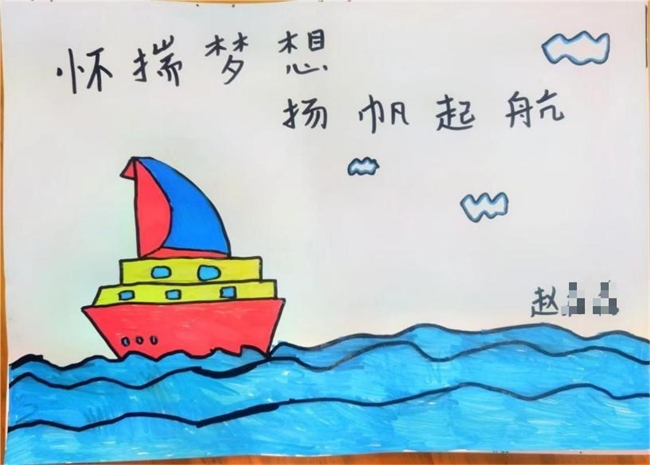 怀揣梦想
扬帆起航
赵